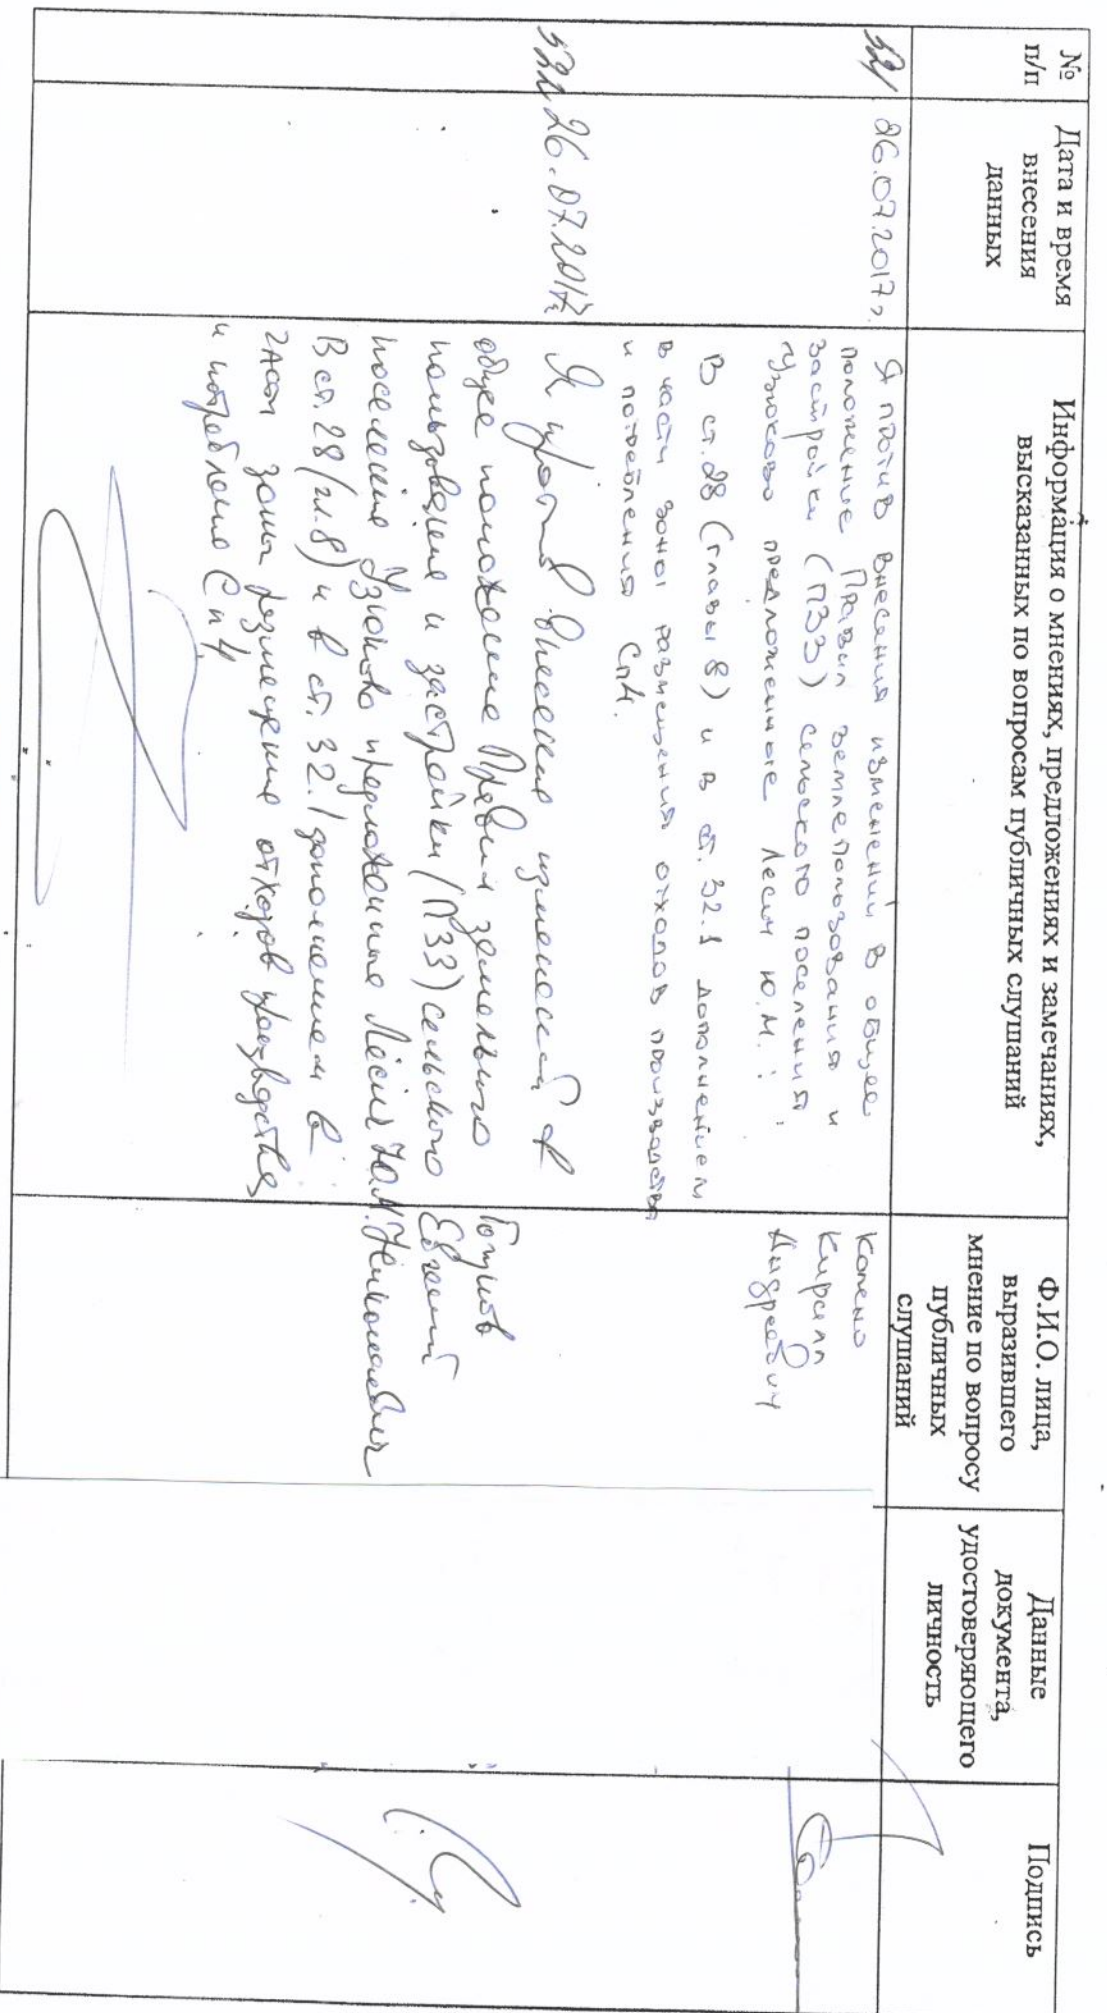 №
п/п
Дата и время
внесения
данных
Информация о мнениях, предложениях и замечаниях,
высказанных по вопросам публичных слушаний
Ф.И.О. лица,
выразившего
мнение по вопросу
публичных
слушаний
Данные
документа,
удостоверяющего
личность
Подпись
521
26.07.2017г.
Я против внесения изменений в общее
положение Правил землепользования и
застройки (ПЗЗ) сельского поселения
Узюково предложенные Лесин Ю.М.:
В ст.28 (главы 8) и в ст. 32.1 дополнением
в части зоны размещения отходов производства
и потребления Сп4.
Кирилл
Андреевич
522
26.07.2017г.
Я против внесения изменений в
общее положение Правил земельного
пользование и застройки (ПЗЗ) сельского
поселение Узюково предложенные Лесин Ю.М.
В ст. 28 (гл. 8) и в ст. 32.1 дополнением в
части зоны размещение отходов производства
и потребление Сп4
Евгений
Николаевич